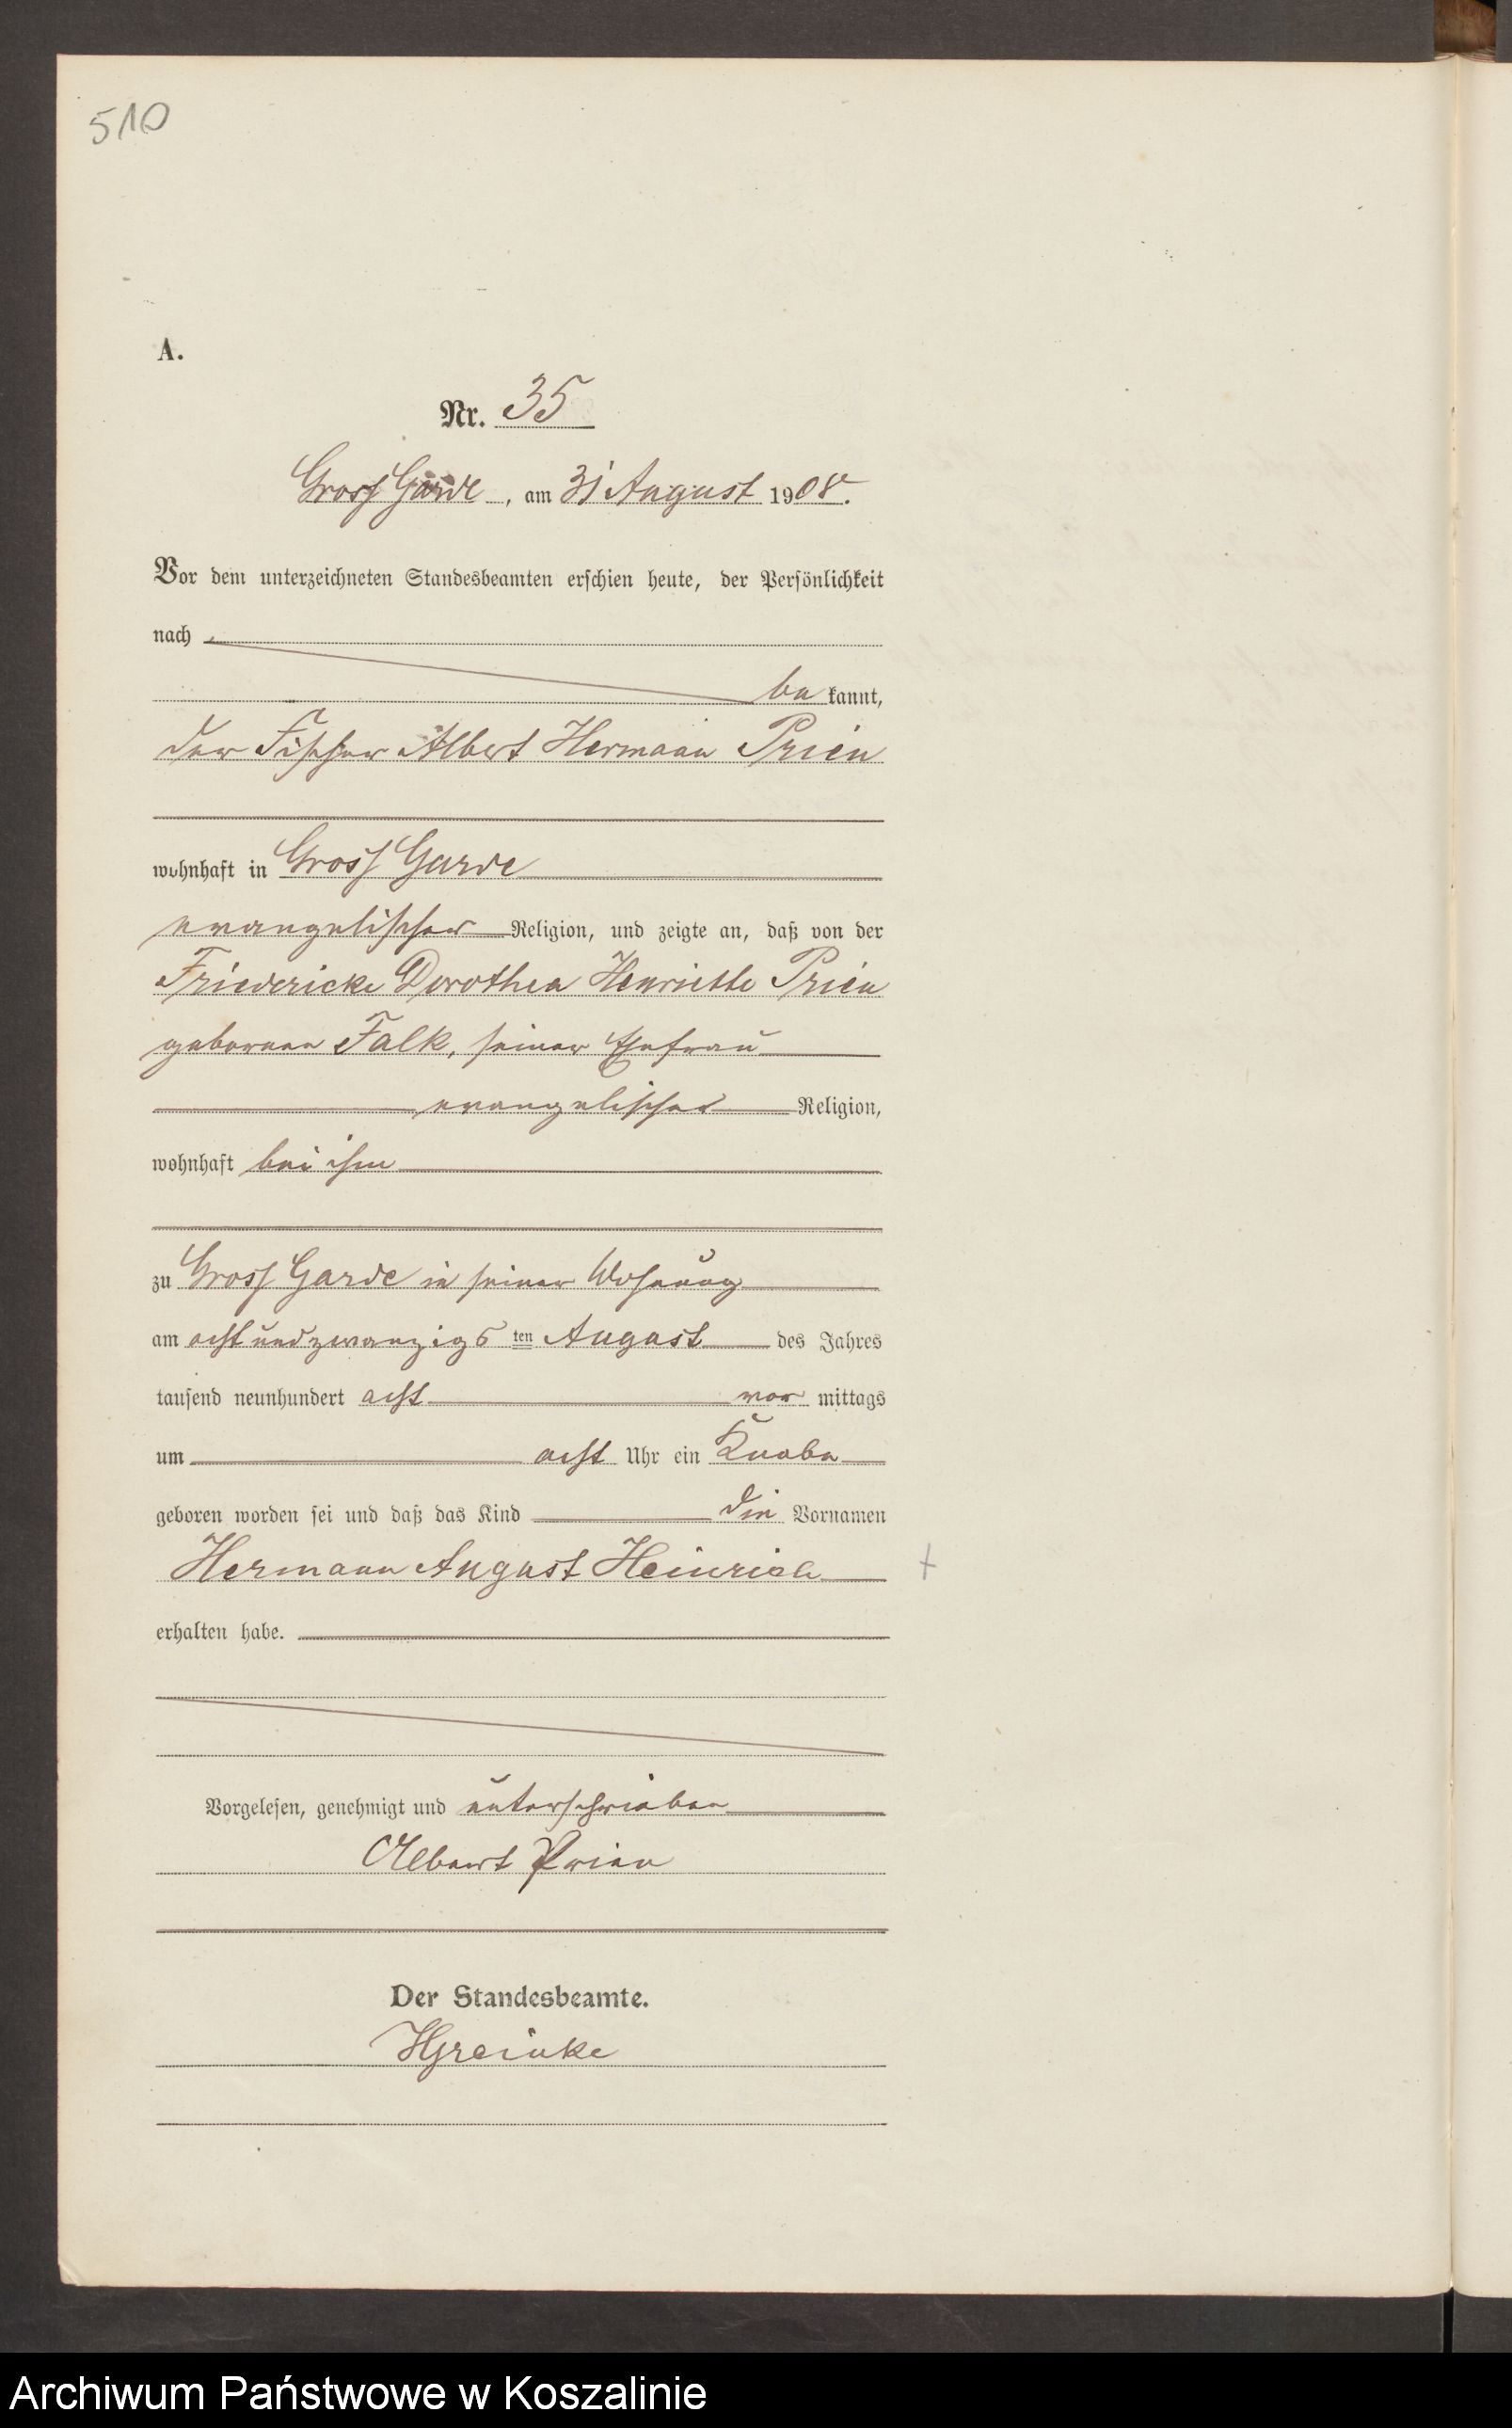 510
A.
Nr. 35
Gross Garde, am 31 August 1908.
Vor dem unterzeichneten Standesbeamten erschien heute, der Persönlichkeit
nach
be kannt,
der Fischer Albert Hermann Prien
wohnhaft in Gross Garde
evangelischer Religion, und zeigte an, daß von der
Friedericke Dorothea Henriette Prien
geborenen Falk, seiner Ehefrau
evangelischer Religion,
wohnhaft bei ihm
zu Gross Garde in seiner Wohnung
am achtundzwanzigsten August des Jahres
tausend neunhundert acht vor mittags
um acht Uhr ein Knabe
geboren worden sei und daß das Kind die Vornamen
Hermann August Heinrich
erhalten habe.
Vorgelesen, genehmigt und unterschrieben
Albert Prien
Der Standesbeamte.
HGreinke
Archiwum Państwowe w Koszalinie